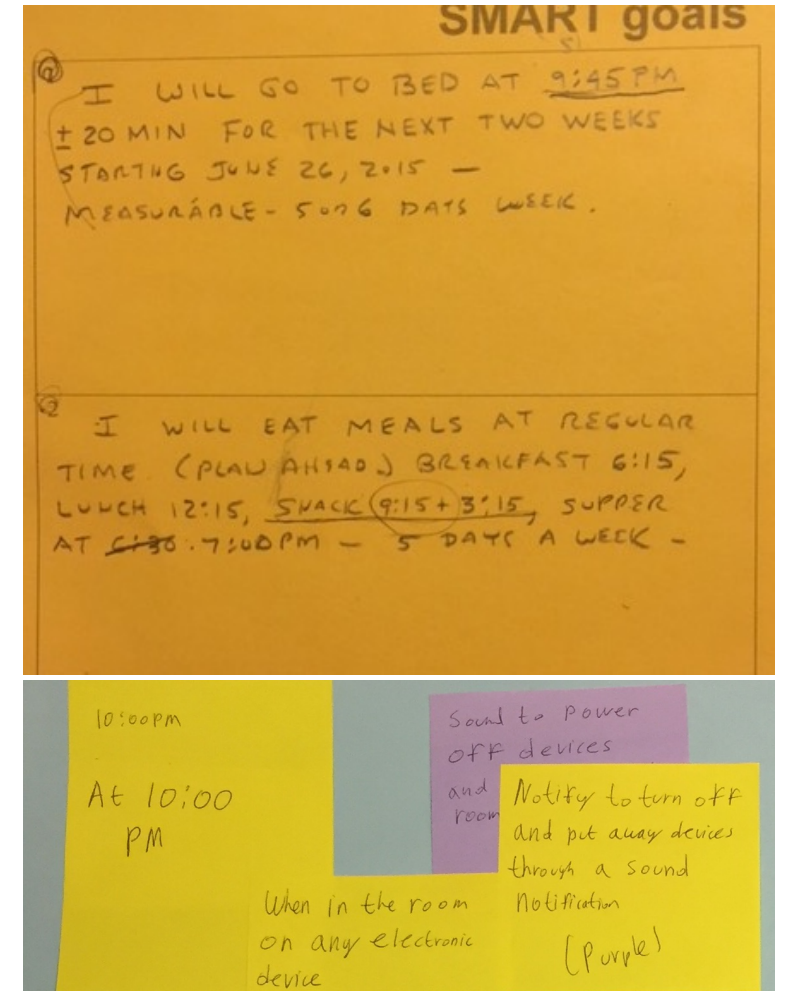 SMART goals
1
I WILL GO TO BED AT 9:45 PM
± 20 MIN FOR THE NEXT TWO WEEKS
STARTING JUNE 26, 2015 —
MEASURABLE - 5 or 6 DAYS WEEK.
2
I WILL EAT MEALS AT REGULAR
TIME (PLAN AHEAD.) BREAKFAST 6:15,
LUNCH 12:15, SNACK 9:15 + 3:15, SUPPER
AT 6:30 . 7:00 PM — 5 DAYS A WEEK -
10:00pm
At 10:00
PM
When in the room
on any electronic
device
Sound to power
off devices
and
room
Notify to turn off
and put away devices
through a sound
notification
(purple)